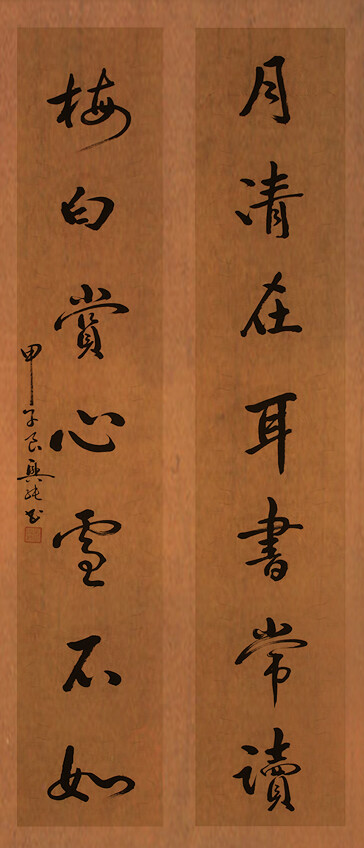 月清在耳書常讀
梅白賞心雪不如
甲子